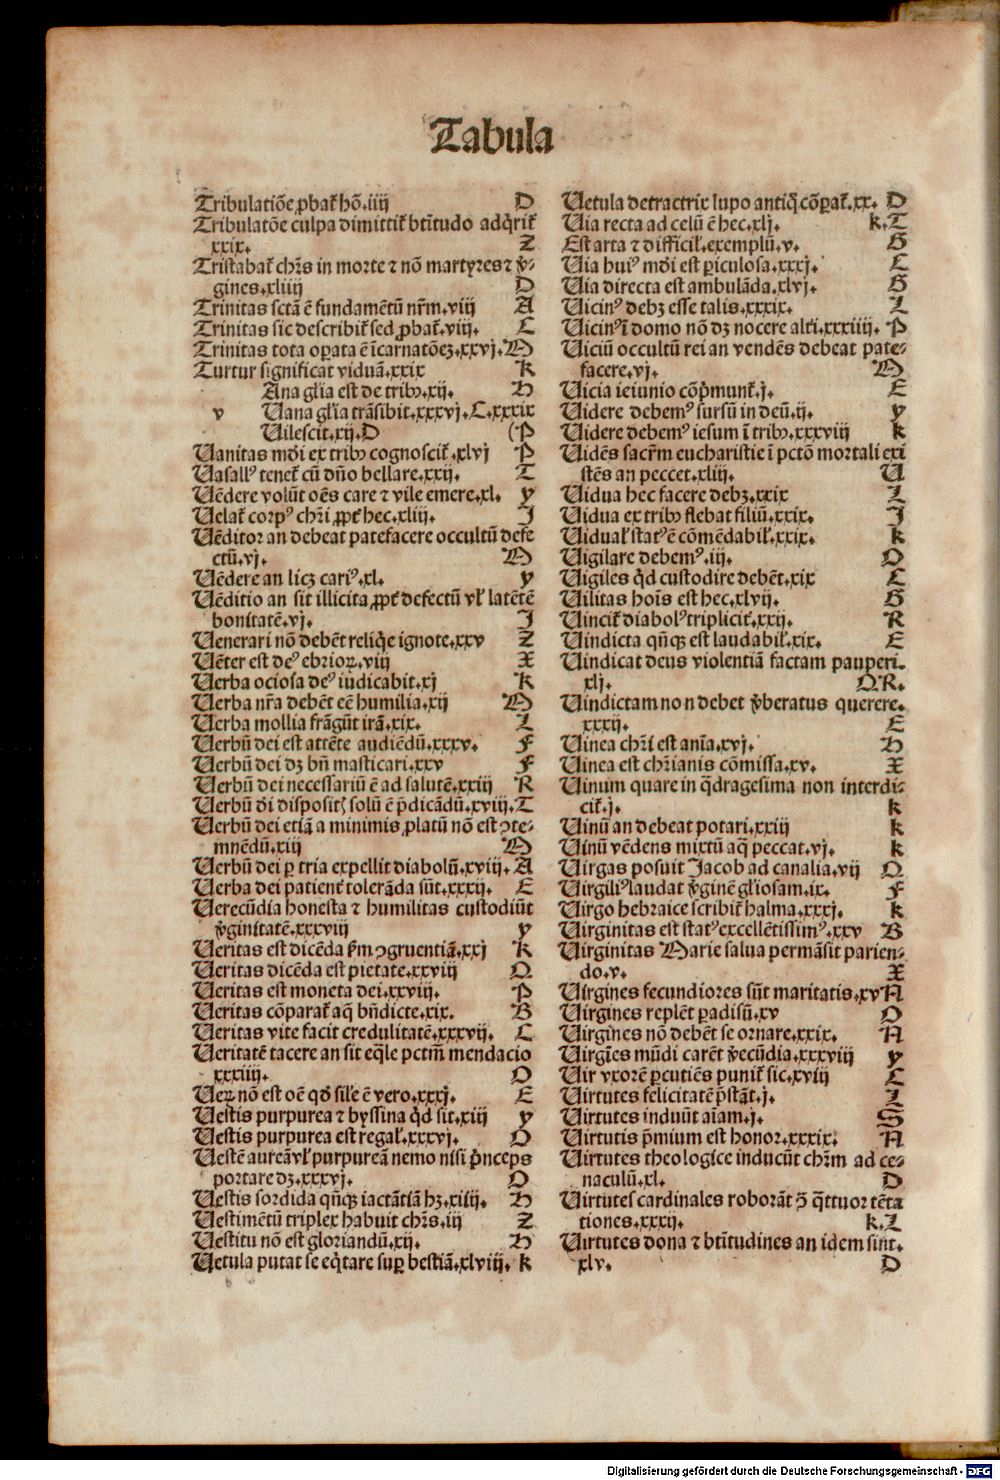 Tabula
Tribulatiōe ꝓbat᷑ hō.iiij D
Tribulatōe culpa dimittit᷑ btītudo adq̇rit᷑
xxix. Z
Tristabat᷑ chr̄s in morte ⁊ nō martyres ⁊ v̇-
gines.xliiij D
Trinitas sctā ē fundamētū nr̄m.viij A
Trinitas sic describit᷑ sed ꝓbat᷑.viij. C
Trinitas tota oꝑata ē īcarnatōeꝫ.xxvj. M
Turtur significat viduā.xxix K
Ana gl̄ia est de tribꝰ.xij. H
v Uana gl̄ia trāsibit.xxxvj.C.xxxix
Uilescit.xij.D (P
Uanitas mōi ex tribꝰ cognoscit᷑.xlvj P
Uasallꝰ tenet᷑ cū dn̄o bellare.xxij. T
Uēdere volūt oēs care ⁊ vile emere.xl. y
Uelat᷑ corpꝰ chr̄i ꝓpt᷑ hec.xliij. J
Uēditor an debeat patefacere occultū defe
ctū.vj. M
Uēdere an licꝫ cariꝰ.xl. y
Uēditio an sit illicita ꝓpt᷑ defectū vl̓ latētē
bonitatē.vj. J
Uenerari nō debēt reliq̇e ignote.xxv Z
Uēter est deꝰ ebrioꝝ.viij X
Uerba ociosa deꝰ iudicabit.xj K
Uerba nr̄a debēt eē humilia.xij M
Uerba mollia frāgūt irā.xix. L
Uerbū dei est attēte audiēdū.xxxv. F
Uerbū dei dꝫ bn̄ masticari.xxv F
Uerbū dei necessariū ē ad salutē.xxiij R
Uerbū d̄i dispositꝭ solū ē p̄dicādū.xviij. T
Uerbū dei etiā a minimis ꝓlatū nō est ꝯte-
mnēdū.xij M
Uerbū dei ꝑ tria expellit diabolū.xviij. A
Uerba dei patient᷑ tolerāda sūt.xxxij. E
Uerecūdia honesta ⁊ humilitas custodiūt
v̇ginitatē.xxxviij y
Ueritas est dicēda ẜm ꝯgruentiā.xxj K
Ueritas dicēda est pietate.xxviij Q
Ueritas est moneta dei.xxviij. P
Ueritas cōparat᷑ aq̄ bn̄dicte.xix. B
Ueritas vite facit credulitatē.xxxvij. C
Ueritatē tacere an sit eq̄le pctm̄ mendacio
xxxiiij. O
Ueꝝ nō est oē qd̄ sil̓e ē vero.xxxj. E
Uestis purpurea ⁊ byssina q̇d sit.xiij y
Uestis purpurea est regal̓.xxxvj. O
Uestē aureā vl̓ purpureā nemo nisi ṗnceps
portare dꝫ.xxxvj. O
Uestis sordida qn̄qꝫ iactātiā hꝫ.xiiij. H
Uestimētū triplex habuit chr̄s.iij Z
Uestitu nō est gloriandū.xij. H
Uetula putat se eq̇tare suꝑ bestiā.xlviij. k
Uetula detractrix lupo antiq̇ cōꝑat᷑.xx. D
Uia recta ad celū ē hec.xlj. k.T
Est arta ⁊ difficil̓.exemplū.v. G
Uia huiꝰ mōi est ꝑiculosa.xxxj. C
Uia directa est ambulāda.xlvj. G
Uicinꝰ debꝫ esse talis.xxxix. L
Uicinꝰ ī domo nō dꝫ nocere alt̓i.xxxiiij. P
Uiciū occultū rei an vendēs debeat pate-
facere.vj. M
Uicia ieiunio cōṗmunt᷑.j. E
Uidere debemꝰ sursū in deū.ij. y
Uidere debemꝰ iesum ī tribꝰ.xxxviij k
Uidēs sacr̄m eucharistie ī pctō mortali exi
stēs an peccet.xliij. U
Uidua hec facere debꝫ.xxix L
Uidua ex tribꝰ flebat filiū.xxix. J
Uidual̓ statꝰ ē cōmēdabil̓.xxix. k
Uigilare debemꝰ.iij. O
Uigiles q̇d custodire debēt.xix C
Uilitas hoīs est hec.xlvij. G
Uincit᷑ diabolꝰ triplicit᷑.xxij. R
Uindicta qn̄qꝫ est laudabil̓.xix. E
Uindicat deus violentiā factam pauperi.
xlj. Q.R.
Uindictam non debet v̇beratus querere.
xxxij. E
Uinea chr̄i est anīa.xvj. H
Uinea est chr̄ianis cōmissa.xv. X
Uinum quare in q̄dragesima non interdi-
cit᷑.j. k
Uinū an debeat potari.xxiij k
Uinū vēdens mixtū aq̄ peccat.vj. k
Uirgas posuit Jacob ad canalia.vij Q
Uirgiliꝰ laudat v̇ginē gl̓iosam.ix. F
Uirgo hebraice scribit᷑ halma.xxxj. k
Uirginitas est statꝰ excellētissimꝰ.xxv B
Uirginitas Marie salua permāsit parien-
do.v. X
Uirgines fecundiores sūt maritatis.xv A
Uirgines replēt ꝑadisū.xv O
Uirgines nō debēt se ornare.xxix. A
Uirgīes mūdi carēt v̇ecūdia.xxxviij y
Uir vxorē ꝑcutiēs punit᷑ sic.xviij C
Uirtutes felicitatē p̄stāt.j. L
Uirtutes induūt aīam.j. S
Uirtutis p̄mium est honor.xxxix. A
Uirtutes theologice inducūt chr̄m ad ce-
naculū.xl. D
Uirtutes cardinales roborāt ꝯ̄ q̄ttuor tēta
tiones.xxxij. k.L
Uirtutes dona ⁊ btītudines an idem sint.
xlv. D
Digitalisierung gefördert durch die Deutsche Forschungsgemeinschaft - DFG